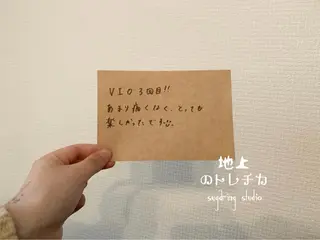 VIO 3回目!!
あまり痛くなく、とっても
楽しかったです
地上
のトレチカ
sugaring studio